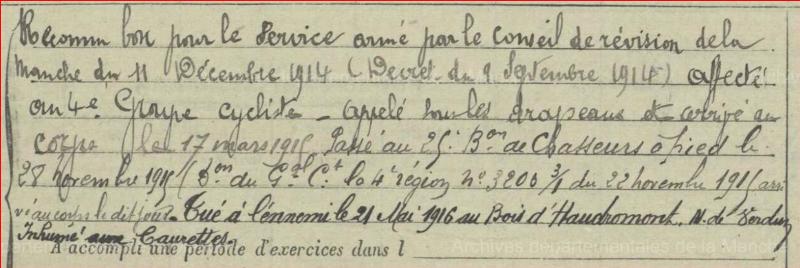 Reconnu bon pour le service armé par le conseil de révision de la
Manche du 11 Décembre 1914 (Décret du 9 Septembre 1914) affecté
au 4e Groupe cycliste - appelé sous les drapeaux et arrivé au
corps le 17 mars 1915 Passé au 25e Bon de Chasseurs à pied le
28 novembre 1915 (Don du Gal Ct la 4e région no 3200 3/1 du 22 novembre 1915 arri
vé au corps le dit jour - Tué à l'ennemi le 21 Mai 1916 au Bois d'Haudromont. N. de Verdun
Inhumé aux Caurettes.
A accompli une période d'exercices dans l
Archives départementales de la Manche